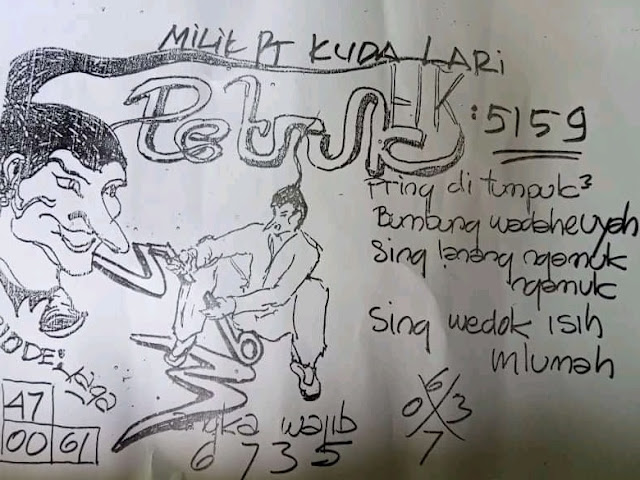 MILIK PT KUDA LARI
Petruk
HK : 5159
Pring di tumpuk²
Bumbung wadahe uyah
Sing lanang ngamuk
ngamuk
Sing wedok isih
mlumah
KODE :
47
00 61
Angka wajib
6 7 3 5
6
0 3
7